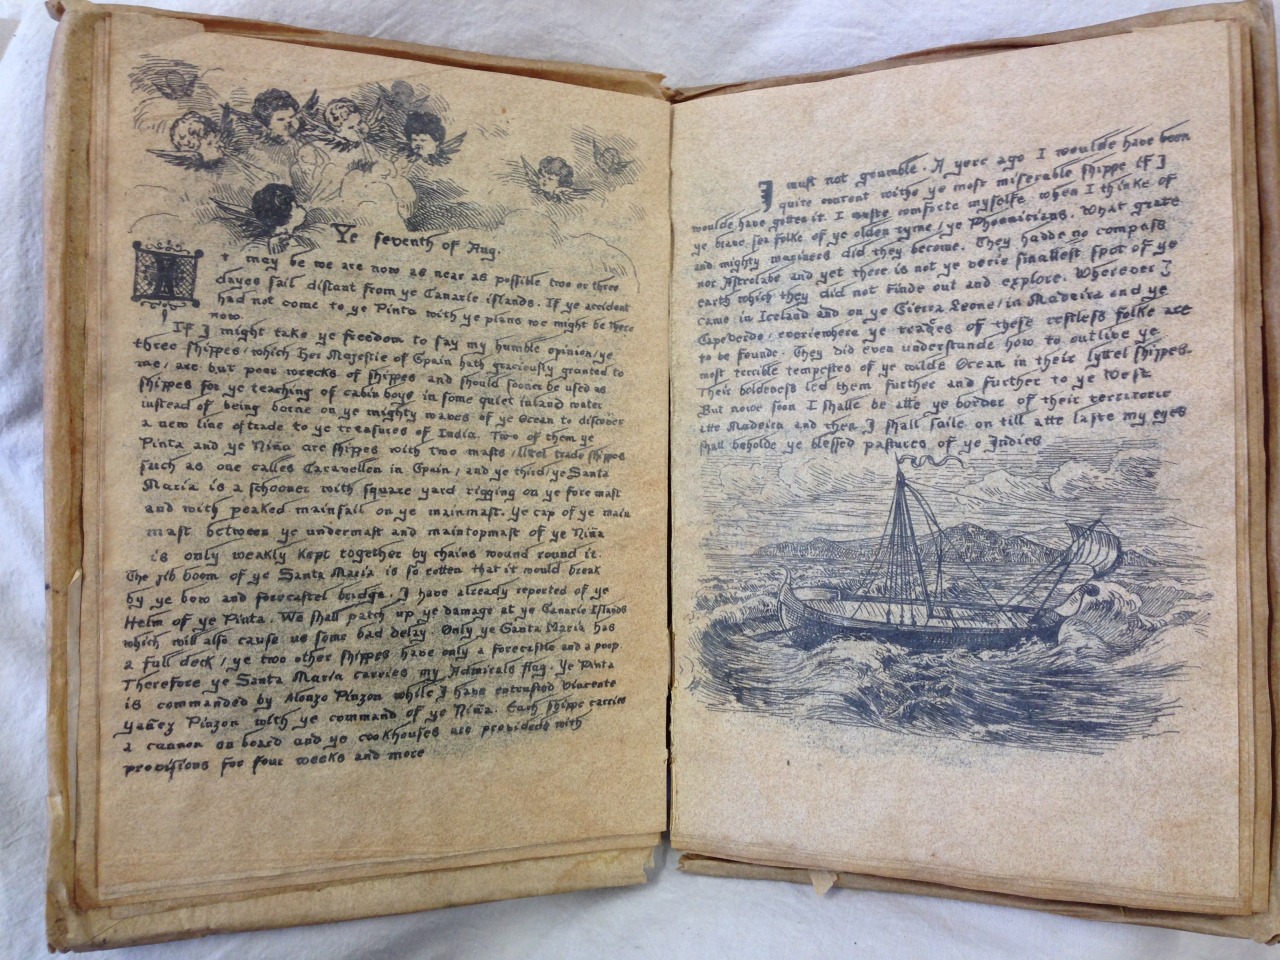 Ye seventh of Aug.
It may be we are now as near as possible two or three
dayes sail distant from ye Canarie islands. If ye accident
had not come to ye Pinto with ye plans we might be there
now.
If I might take ye freedom to say my humble opinion, ye
three shippes, which Her Majestie of Spain hath graciously granted to
me, are but poor wrecks of shippes and should sooner be used as
shippes for ye teaching of cabin boys in some quiet inland water
instead of being borne on ye mighty waves of ye Ocean to discover
a new line of trade to ye treasures of India. Two of them ye
Pinta and ye Niña are shippes with two masts, litel trade shippes
such as one calles Caravellen in Spain, and ye third, ye Santa
Maria is a schooner with square yard rigging on ye fore mast
and with peaked mainsail on ye mainmast. Ye cap of ye main
mast between ye undermast and maintopmast of ye Niña
is only weakly kept together by chains wound round it.
The jib boom of ye Santa Maria is so rotten that it would break
by ye bow and forecastel bridge. I have already reported of ye
Helm of ye Pinta. We shall patch up ye damage at ye Canarie Islands
which will also cause us some bad delay. Only ye Santa Maria has
a full deck, ye two other shippes have only a forecastle and a poop.
Therefore ye Santa Maria carries my Admirals flag. Ye Pinta
is commanded by Alonzo Pinzon while I have entrusted Vincente
Yañez Pinzon with ye command of ye Niña. Each shippe carries
a cannon on board and ye cookhouses are provideds with
provisions for four weeks and more
I must not grumble. A yere ago I woulde have been
quite content withe ye most miserable shippe if I
woulde have gotten it. I muste comforte myselfe when I thinke of
ye brave sea folke of ye olden tyme, ye Phoenitians. What grate
and mighty mariners did they become. They hadde no compass
nor Astrolabe and yet there is not ye verie smallest spot of ye
earth which they did not finde out and explore. Wherever I
came in Iceland and on ye Sierra Leone, in Madeira and ye
Capeverdo, everiewhere ye traces of these restless folke are
to be founde. They did even understande how to outlive ye
most terrible tempestes of ye wilde Ocean in their lyttel shippes.
Their boldeness led them further and further to ye West
But nowe soon I shalle be atte ye border of their territorie
atte Madeira and then I shall saile on till atte laste my eyes
shall beholde ye blessed pastures of ye Indies